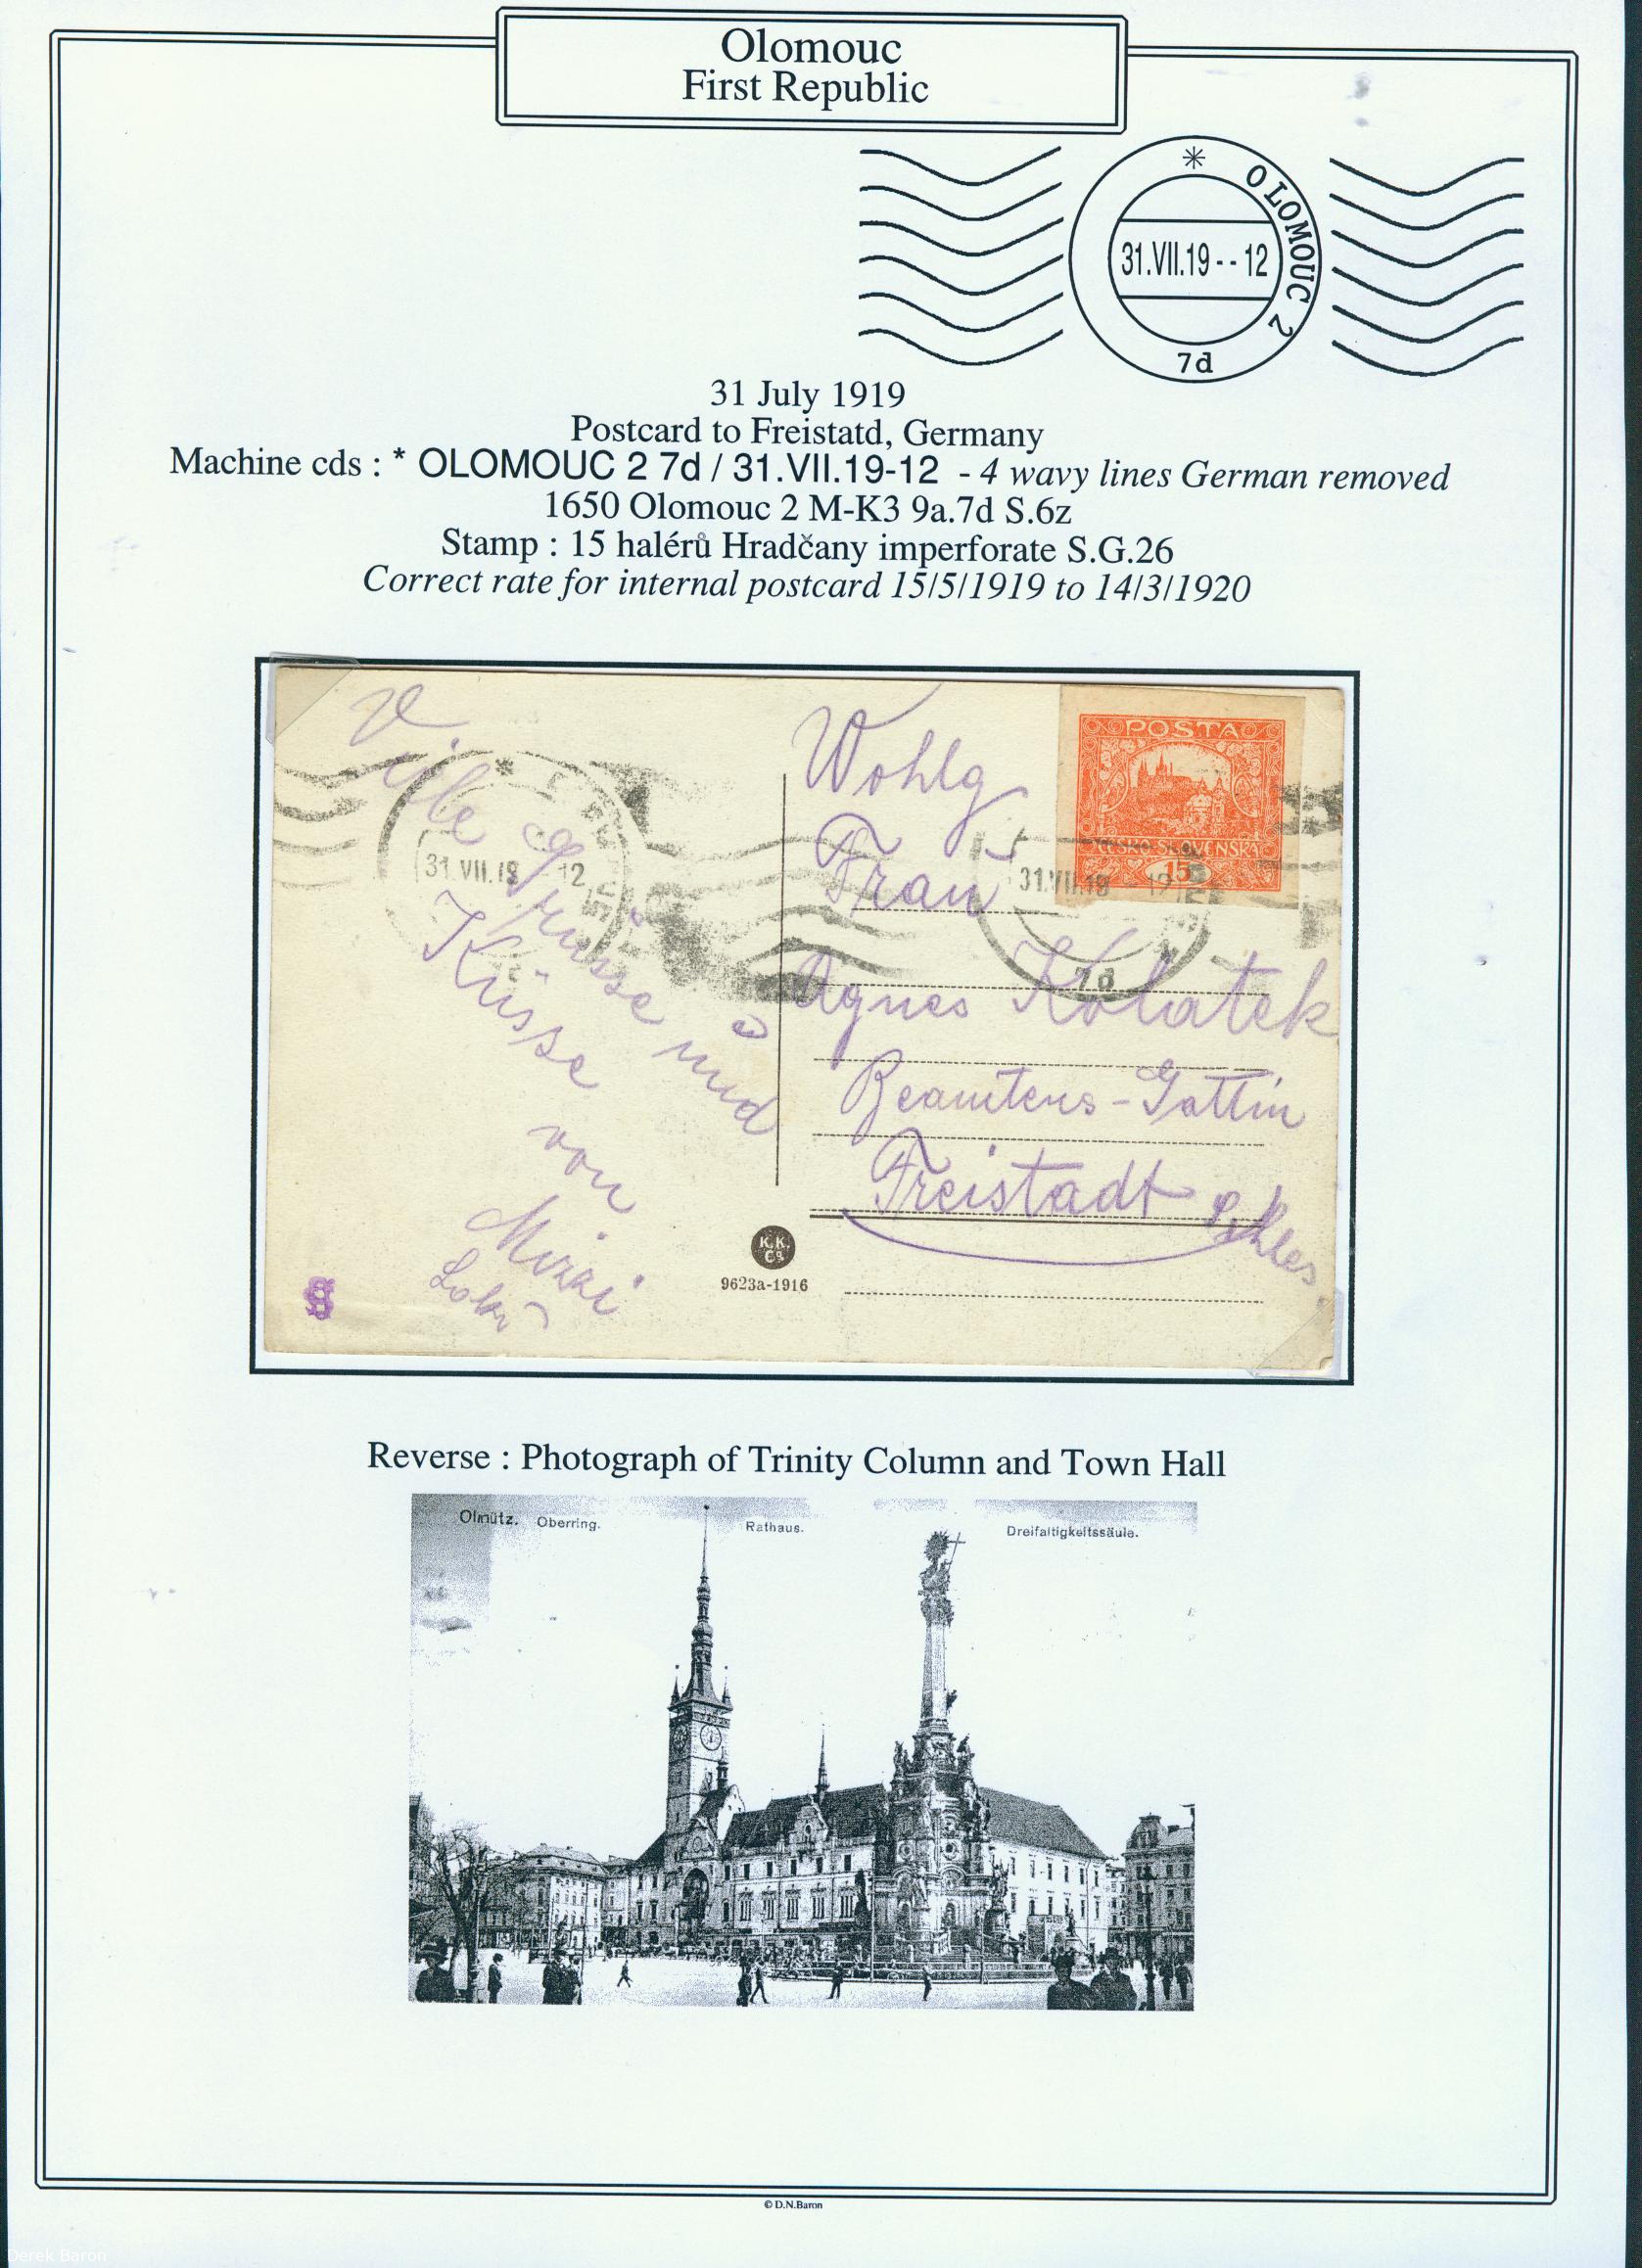 Olomouc
First Republic
* OLOMOUC 2
31.VII.19 - - 12
7d
31 July 1919
Postcard to Freistatd, Germany
Machine cds : * OLOMOUC 2 7d / 31.VII.19-12 - 4 wavy lines German removed
1650 Olomouc 2 M-K3 9a.7d S.6z
Stamp : 15 halérů Hradčany imperforate S.G.26
Correct rate for internal postcard 15/5/1919 to 14/3/1920
Viele Grüsse und
Küsse von
Mizzi
31.VII.19 12
POSTA
ČESKO-SLOVENSKÁ
15
31.VII.19 12
7d
Wohlg
Frau
Agnes Kolatek
Beamtens-Gattin
Freistadt Schles.
K.K.
Co.
9623a-1916
Reverse : Photograph of Trinity Column and Town Hall
Olmütz. Oberring. Rathaus. Dreifaltigkeitssäule.
© D.N.Baron
Derek Baron